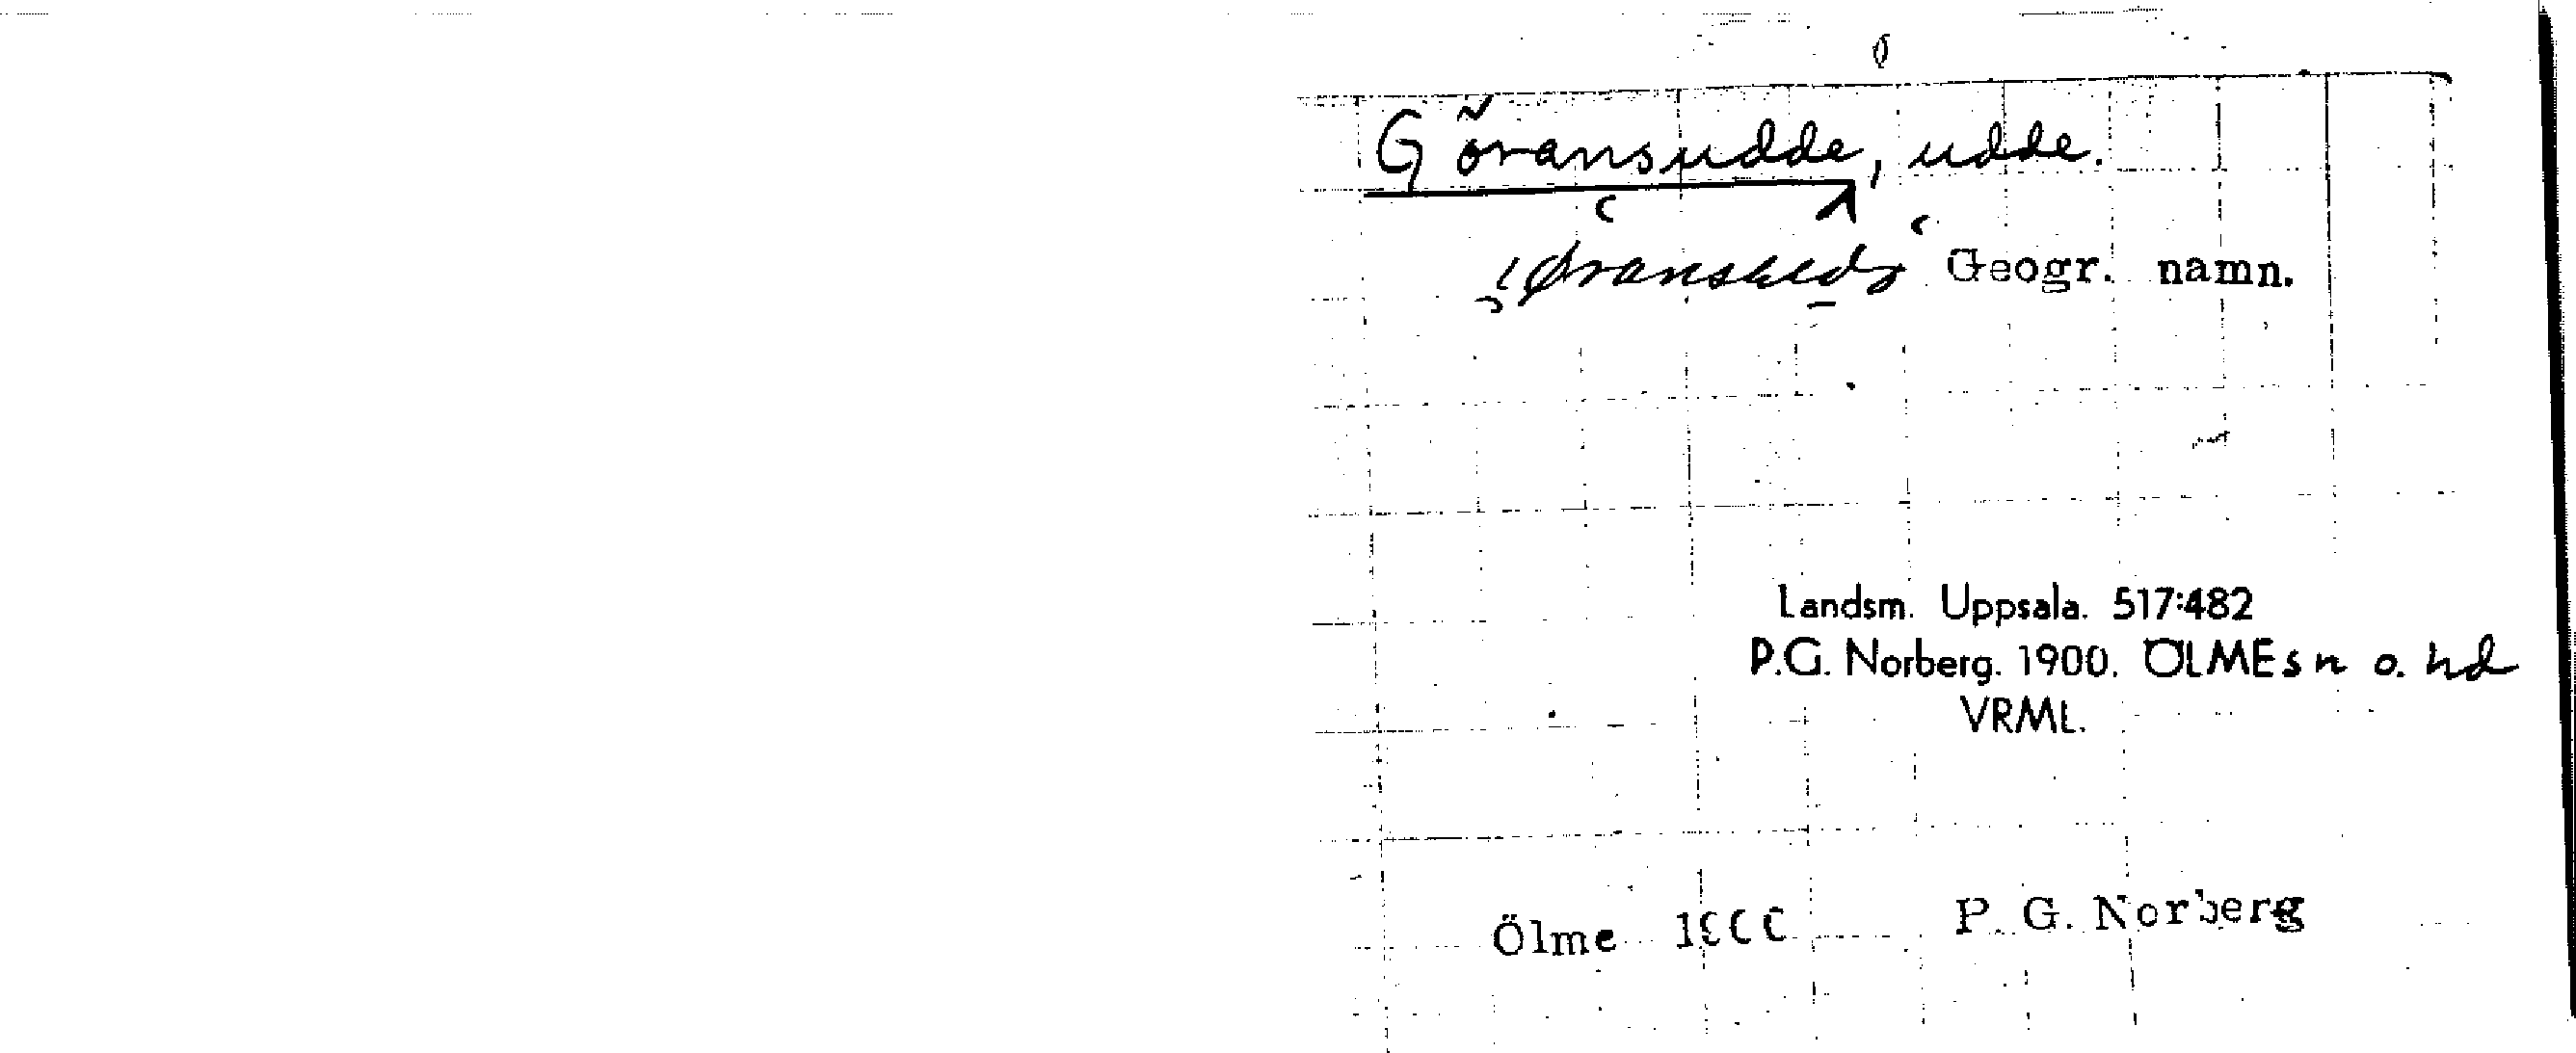 Göransudde, udde.
Geogr. namn.
Landsm. Uppsala. 517:482
P.G. Norberg. 1900. ÖLME sn o. hd
VRML.
Ölme 1900 P. G. Norberg